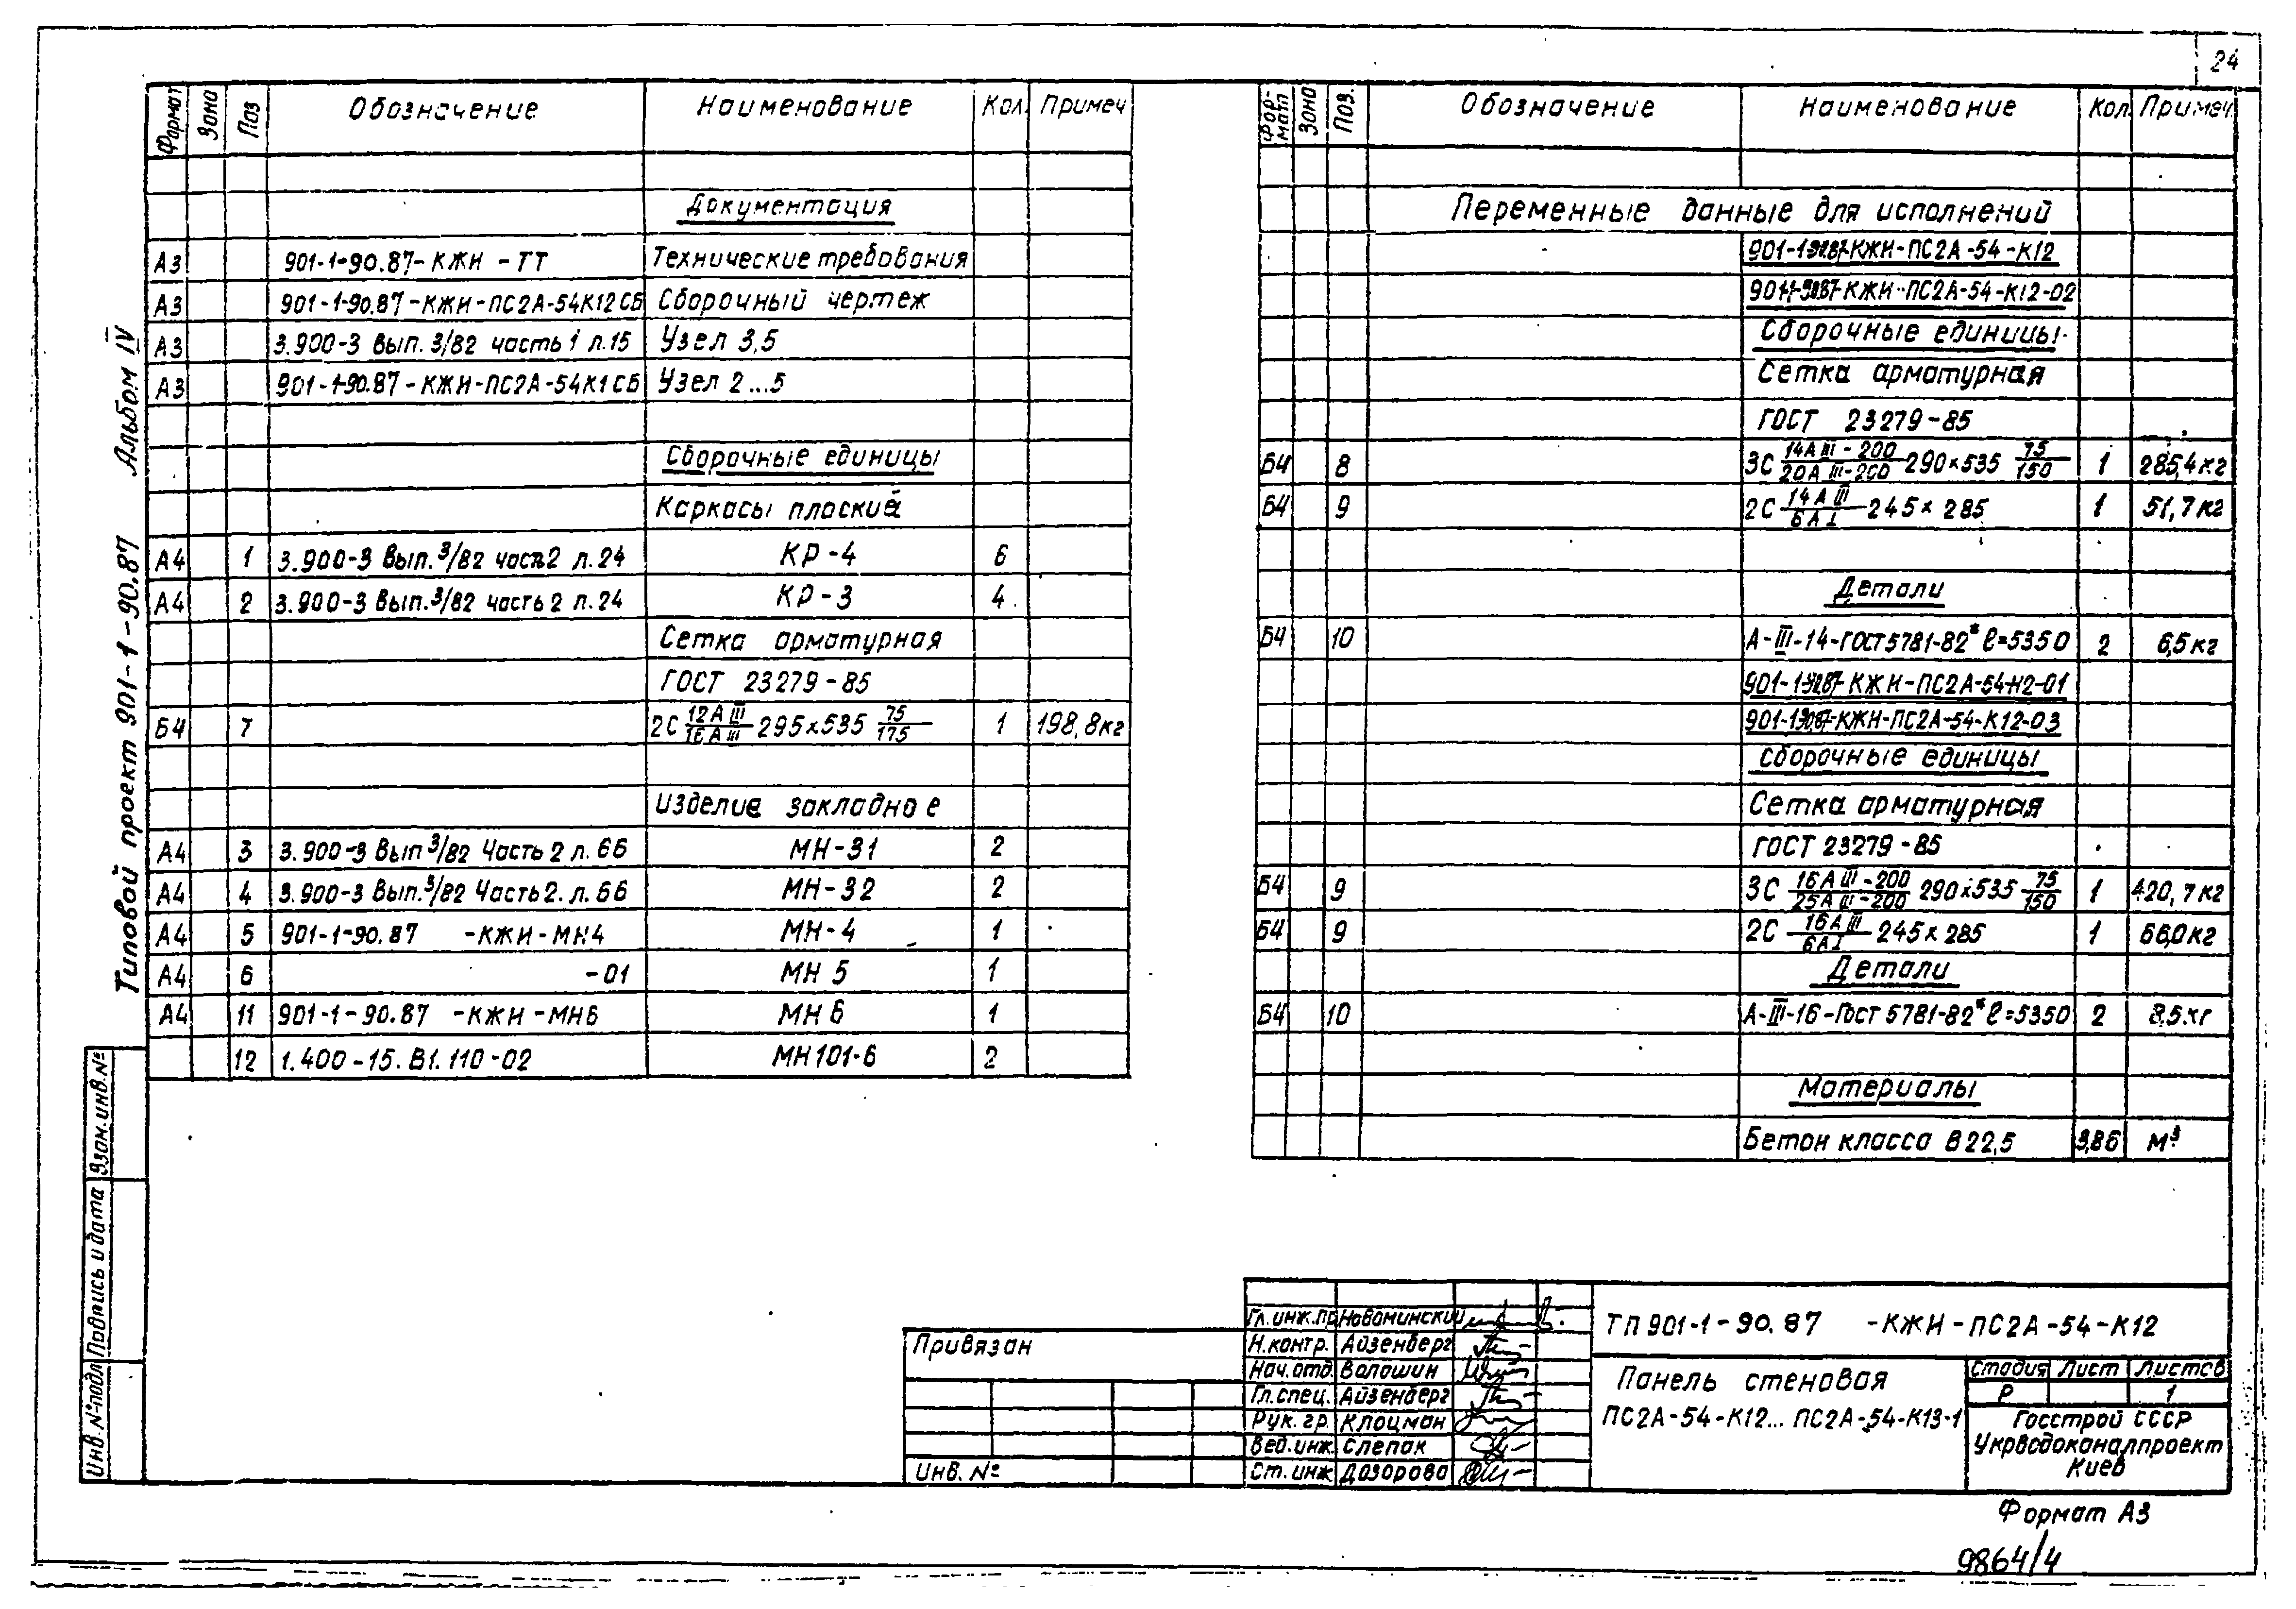 24
Типовой проект 901-1-90.87 Альбом IV
Формат Зона Поз Обозначение Наименование Кол. Примеч
Документация
А3 901-1-90.87-КЖИ-ТТ Технические требования
А3 901-1-90.87-КЖИ-ПС2А-54К12СБ Сборочный чертеж
А3 3.900-3 Вып. 3/82 часть 1 л.15 Узел 3,5
А3 901-1-90.87-КЖИ-ПС2А-54К1СБ Узел 2...5
Сборочные единицы
Каркасы плоские
А4 1 3.900-3 Вып. 3/82 часть 2 л.24 КР-4 6
А4 2 3.900-3 Вып. 3/82 часть 2 л.24 КР-3 4
Сетка арматурная
ГОСТ 23279-85
Б4 7 2С 12АIII/16АIII 295×535 75/175 1 198,8кг
Изделие закладное
А4 3 3.900-3 Вып 3/82 Часть 2 л.66 МН-31 2
А4 4 3.900-3 Вып. 3/82 Часть 2. л.66 МН-32 2
А4 5 901-1-90.87 -КЖИ-МН4 МН-4 1
А4 6 -01 МН 5 1
А4 11 901-1-90.87 -КЖИ-МН6 МН 6 1
12 1.400-15.В1.110-02 МН101-6 2
Фор-мат Зона Поз. Обозначение Наименование Кол. Примеч.
Переменные данные для исполнений
901-1-90.87-КЖИ-ПС2А-54-К12
901-1-90.87-КЖИ-ПС2А-54-К12-02
Сборочные единицы
Сетка арматурная
ГОСТ 23279-85
Б4 8 3С 14АIII-200/20АIII-200 290×535 75/150 1 285,4кг
Б4 9 2С 14АIII/6АI 245×285 1 51,7кг
Детали
Б4 10 А-III-14-ГОСТ5781-82* ℓ=5350 2 6,5кг
901-1-90.87-КЖИ-ПС2А-54-Н2-01
901-1-90.87-КЖИ-ПС2А-54-К12-03
Сборочные единицы
Сетка арматурная
ГОСТ 23279-85
Б4 9 3С 16АIII-200/25АIII-200 290×535 75/150 1 420,7кг
Б4 9 2С 16АIII/6АI 245×285 1 66,0кг
Детали
Б4 10 А-III-16-Гост 5781-82* ℓ=5350 2 8,5кг
Материалы
Бетон класса В22,5 3,86 м³
Инв.№подл Подпись и дата Взам.инв.№
Привязан
Инв. №
Гл.инж.пр. Новоминский
Н.контр. Айзенберг
Нач.отд. Волошин
Гл.спец. Айзенберг
Рук.гр. Клоцман
Вед.инж. Слепак
Ст.инж Дозорова
ТП 901-1-90.87 -КЖИ-ПС2А-54-К12
Панель стеновая
ПС2А-54-К12... ПС2А-54-К13-1
Стадия Лист Листов
Р 1
Госстрой СССР
Укрводоканалпроект
Киев
Формат А3
9864/4